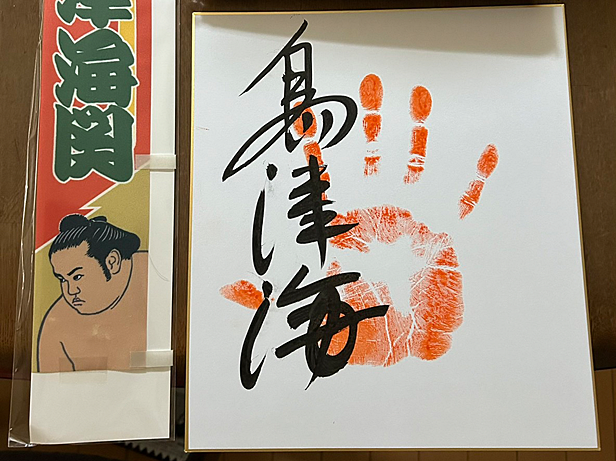 島津海
海関